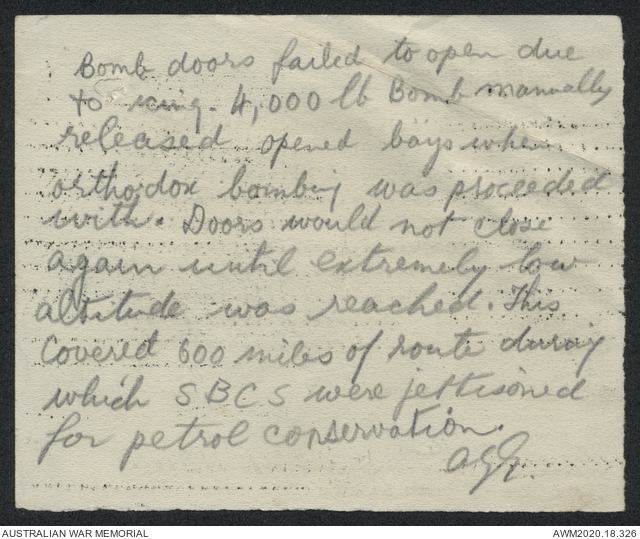 Bomb doors failed to open due
to icing. 4,000 lb Bomb manually
released opened bays when
orthodox bombing was proceeded
with. Doors would not close
again until extremely low
altitude was reached. This
Covered 600 miles of route during
which SBCS were jettisoned
for petrol conservation.
AUSTRALIAN WAR MEMORIAL
AWM2020.18.326